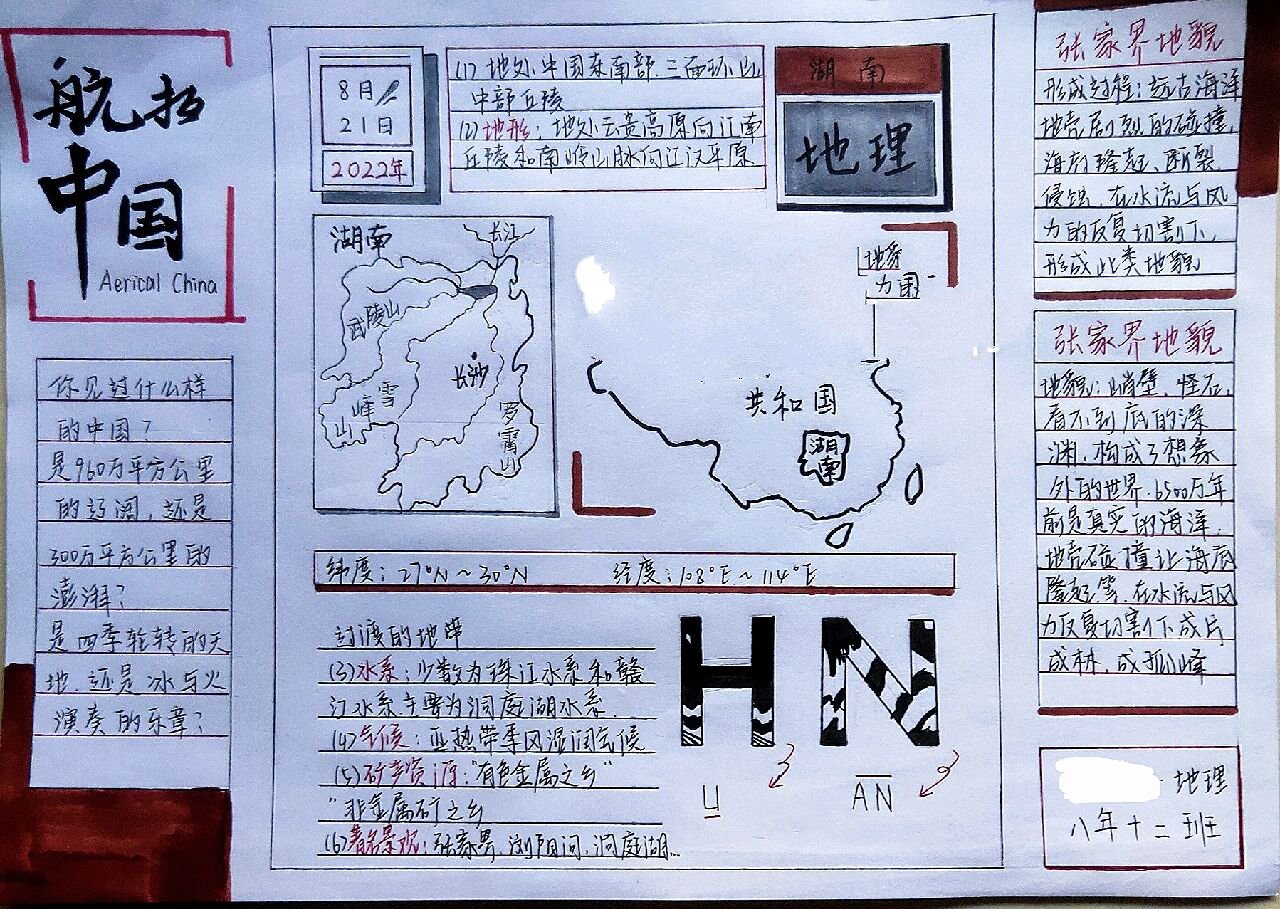 航拍
中国
Aerical China
你见过什么样
的中国？
是960万平方公里
的辽阔，还是
300万平方公里的
澎湃？
是四季轮转的天
地，还是冰与火
演奏的乐章？
8月
21日
2022年
(1)地处中国东南部，三面环山
中部丘陵
(2)地形：地处云贵高原向江南
丘陵和南岭山脉向江汉平原
湖南
地理
湖南
长江
武陵山
长沙
雪
峰
山
罗霄山
地貌
力国
共和国
湖南
纬度：27°N～30°N
经度：108°E～114°E
过渡的地带
(3)水系：少数为珠江水系和赣
江水系主要为洞庭湖水系。
(4)气候：亚热带季风湿润气候
(5)矿产资源："有色金属之乡"
"非金属矿之乡
(6)著名景观：张家界，浏阳河，洞庭湖...
HN
U
AN
张家界地貌
形成过程：远古海洋
地壳剧烈的碰撞，
海底隆起、断裂
侵蚀，在水流与风
力的反复切割下，
形成此类地貌
张家界地貌
地貌：峭壁、怪石，
看不到底的深
渊，构成了想象
外的世界.6500万年
前是真实的海洋，
地壳碰撞让海底
隆起等，在水流与风
力反复切割下成片
成林，成孤峰
地理
八年十二班